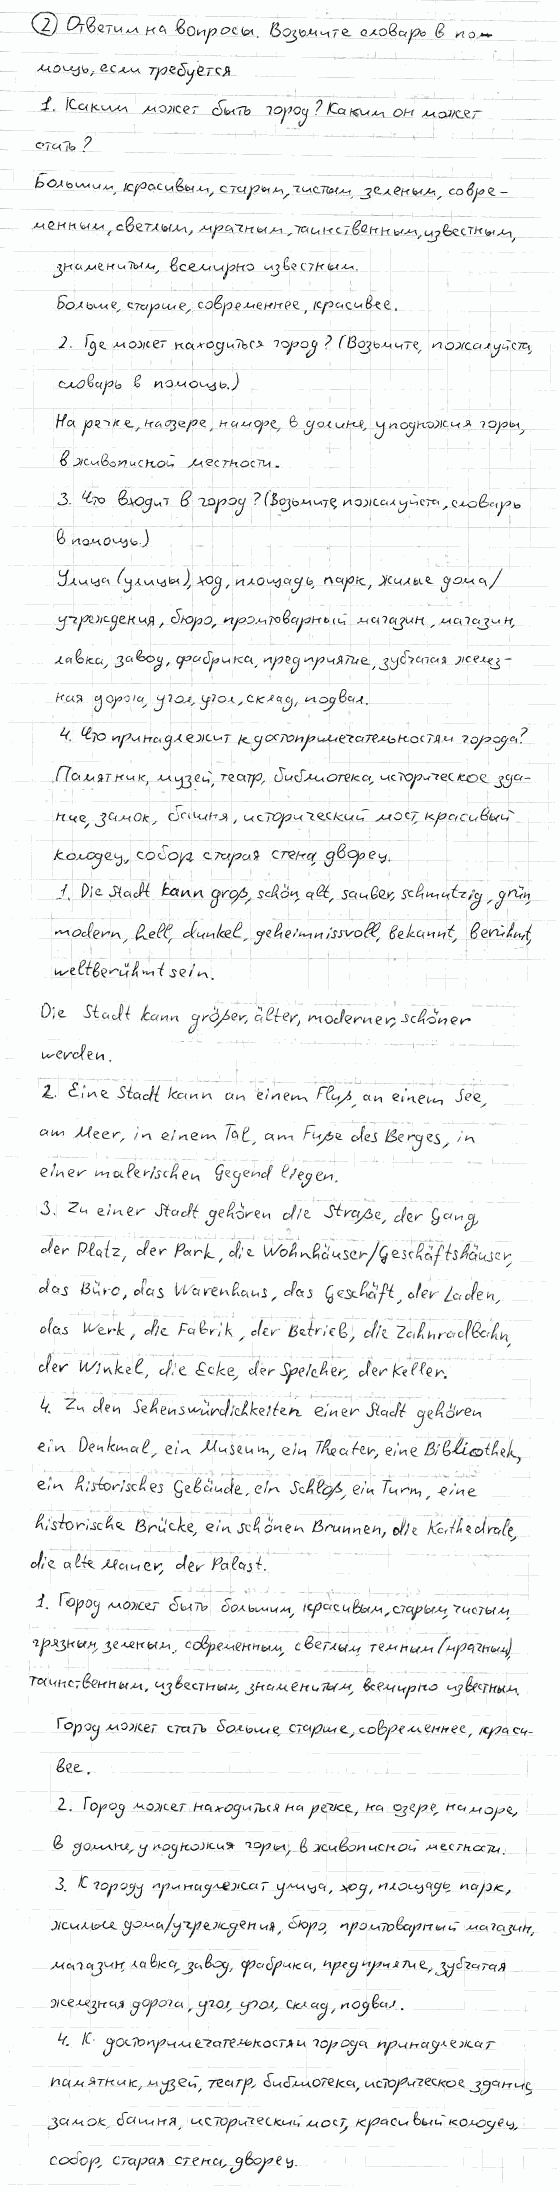 ② Ответил на вопросы. Возьмите словарь в по-
мощь, если требуется
1. Каким может быть город? Каким он может
стать?
Большим, красивым, старым, чистым, зеленым, совре-
менным, светлым, мрачным, таинственным, известным,
знаменитым, всемирно известным.
Больше, старше, современнее, красивее.
2. Где может находиться город? (Возьмите, пожалуйста,
словарь в помощь.)
На речке, на озере, на море, в долине, у подножия горы,
в живописной местности.
3. Что входит в город? (Возьмите, пожалуйста, словарь
в помощь.)
Улица (улицы), ход, площадь, парк, жилые дома/
учреждения, бюро, промтоварный магазин, магазин,
лавка, завод, фабрика, предприятие, зубчатая желез-
ная дорога, угол, угол, склад, подвал.
4. Что принадлежит к достопримечательностям города?
Памятник, музей, театр, библиотека, историческое зда-
ние, замок, башня, исторический мост, красивый
колодец, собор, старая стена, дворец.
1. Die Stadt kann groß, schön, alt, sauber, schmutzig, grün,
modern, hell, dunkel, geheimnissvoll, bekannt, berühmt,
weltberühmt sein.
Die Stadt kann größer, älter, moderner, schöner
werden.
2. Eine Stadt kann an einem Fluß, an einem See,
am Meer, in einem Tal, am Fuße des Berges, in
einer malerischen Gegend liegen.
3. Zu einer Stadt gehören die Straße, der Gang,
der Platz, der Park, die Wohnhäuser/Geschäftshäuser,
das Büro, das Warenhaus, das Geschäft, der Laden,
das Werk, die Fabrik, der Betrieb, die Zahnradbahn,
der Winkel, die Ecke, der Speicher, der Keller.
4. Zu den Sehenswürdichkeiten einer Stadt gehören
ein Denkmal, ein Museum, ein Theater, eine Bibliothek,
ein historisches Gebäude, ein Schloß, ein Turm, eine
historische Brücke, ein schönen Brunnen, die Kathedrale,
die alte Mauer, der Palast.
1. Город может быть большим, красивым, старым, чистым,
грязным, зеленым, современным, светлым, темным (мрачным),
таинственным, известным, знаменитым, всемирно известным.
Город может стать больше, старше, современнее, краси-
вее.
2. Город может находиться на речке, на озере, на море,
в долине, у подножия горы, в живописной местности.
3. К городу принадлежат улица, ход, площадь, парк,
жилые дома/учреждения, бюро, промтоварный магазин,
магазин, лавка, завод, фабрика, предприятие, зубчатая
железная дорога, угол, угол, склад, подвал.
4. К достопримечательностям города принадлежат
памятник, музей, театр, библиотека, историческое здание,
замок, башня, исторический мост, красивый колодец,
собор, старая стена, дворец.